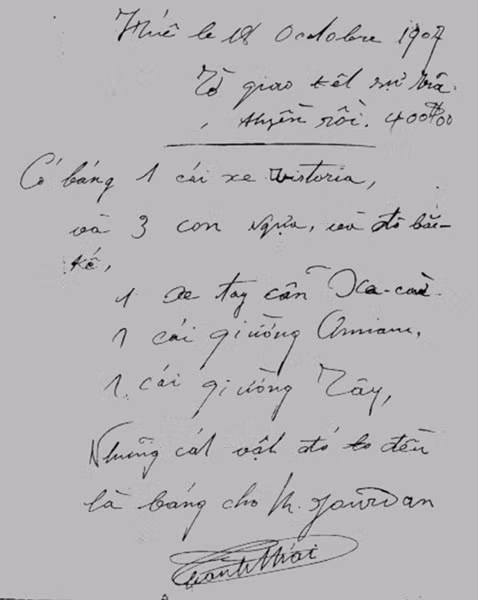 Huế le 18 Octobre 1907
Tờ giao kết sự trả
thuyền rồi. 400$00
Có báng 1 cái xe victoria,
và 3 con ngựa, và đồ bắc-
kế,
1 xe tay cần
1 cái giường Annam,
1 cái giường Tây,
Những cát vật đó to đều
là báng cho M. Jourdan
Thành Thái